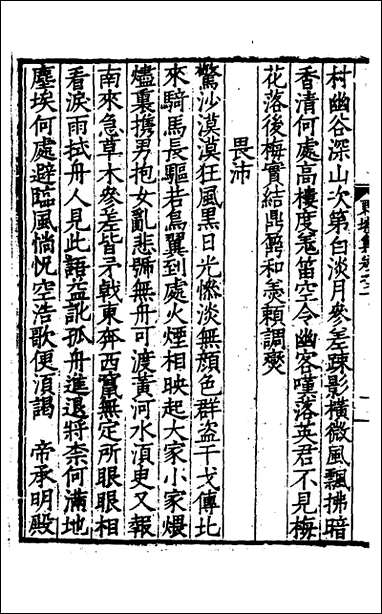 村幽谷深山次第白淡月參差疎影橫微風飄拂暗
香清何處高樓度羗笛空令幽客嘆落英君不見梅
花落後梅實結鼎鼐和羮賴調爕
畏沛
驚沙漠漠狂風黑日光慘淡無顔色群盗干戈傳北
來騎馬長驅若鳥翼到處火煙相映起大家小家煨
燼裏携男抱女亂悲號無舟可渡黄河水湏臾又報
南來急草木參差皆矛戟東奔西竄無定所眼眼相
看淚雨拭舟人見此語益訛孤舟進退將柰何滿地
塵埃何處避臨風惝怳空浩歌便湏謁 帝承明殿